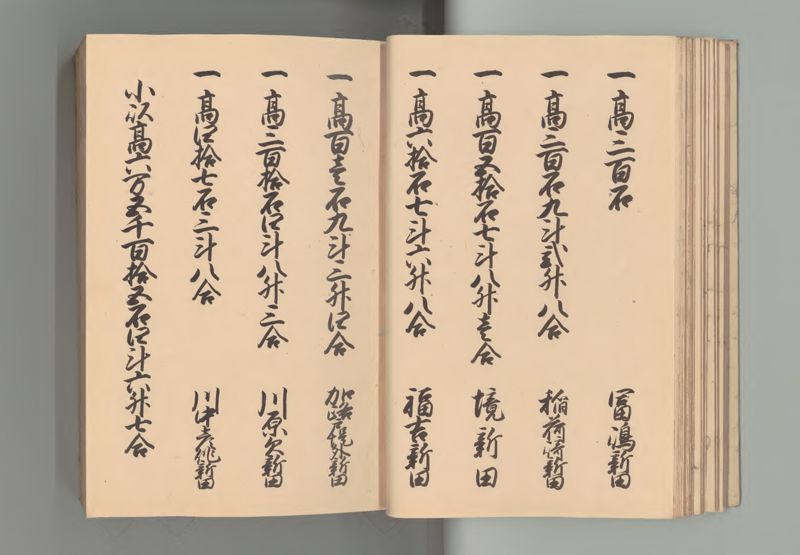 一 高三百石 冨嶋新田
一 高三百石九斗弐升八合 稲荷崎新田
一 高百五拾石七斗八升壱合 境新田
一 高六拾石七斗六升八合 福吉新田
一 高百壱石九斗三升四合 加路戸境外新田
一 高三百拾石四斗八升三合 川原欠新田
一 高四拾七石三斗八合 川中新田
小以高六万五千百拾五石四斗六升七合